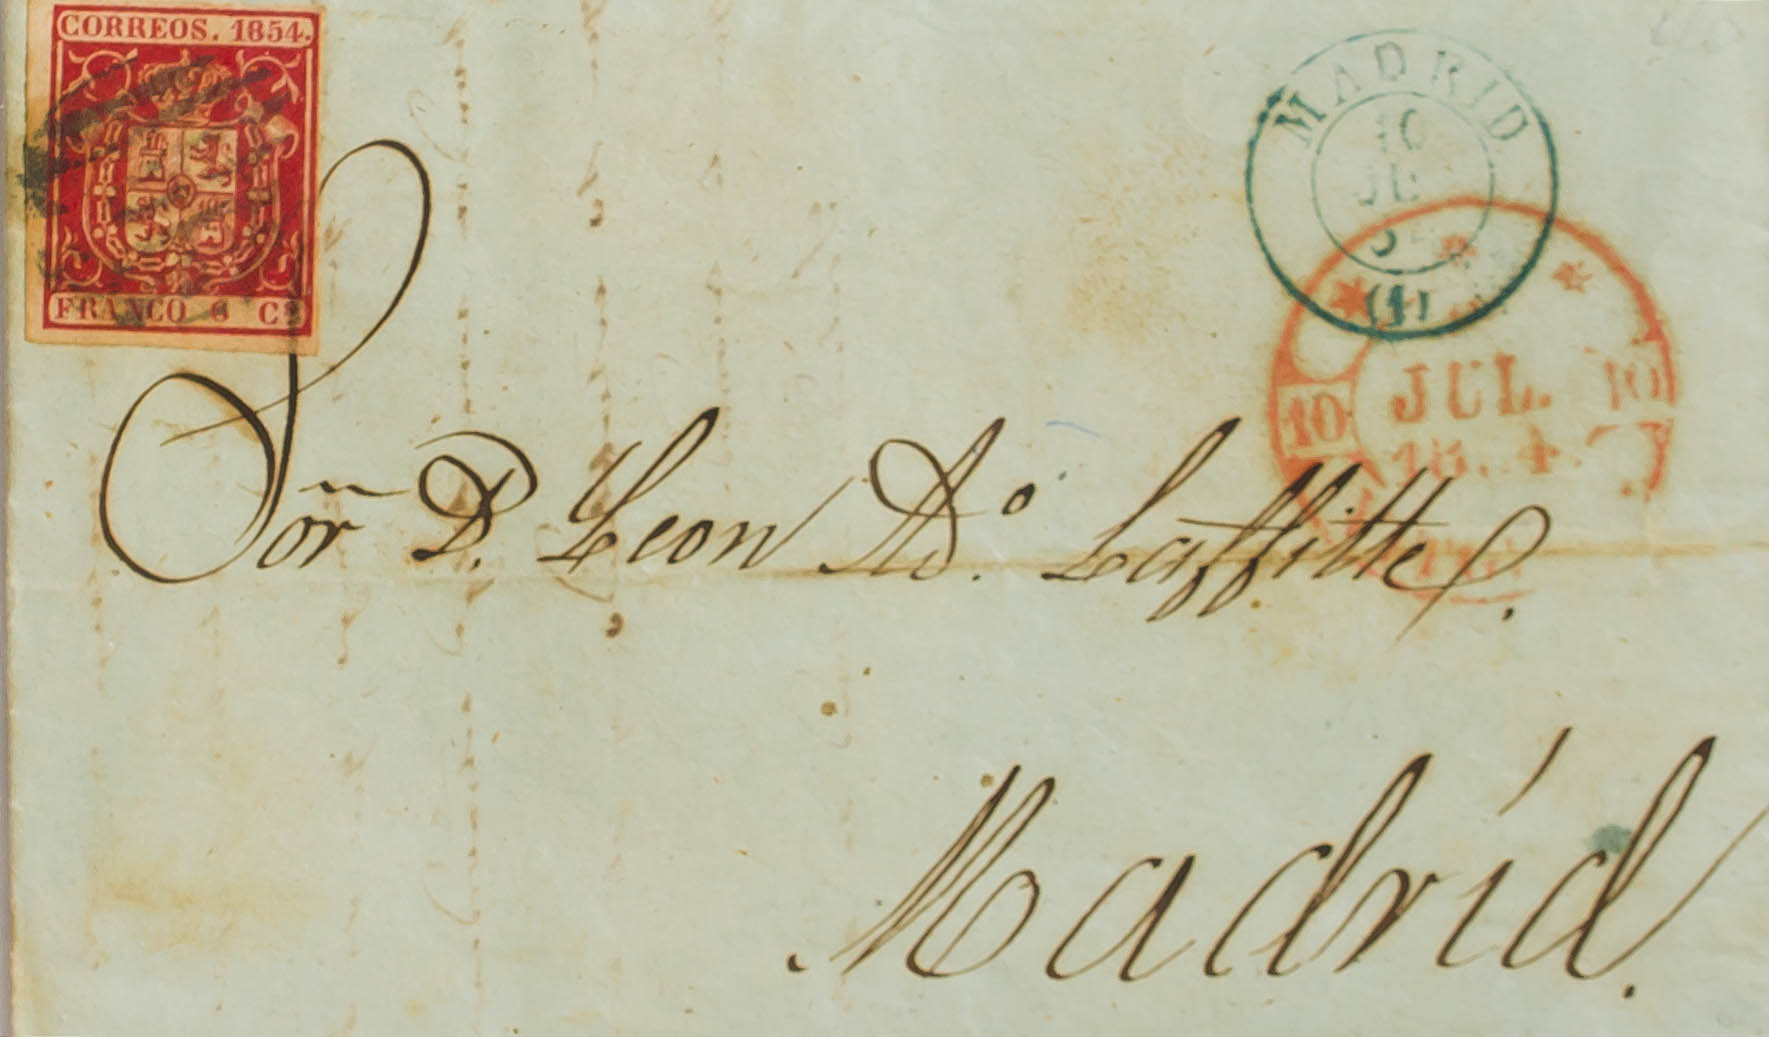 CORREOS. 1854.
FRANCO 6 Cs
MADRID
10
(1)
10 JUL. 10
Sor̃ D. Leon Ad.º Laffitte.
Madrid.